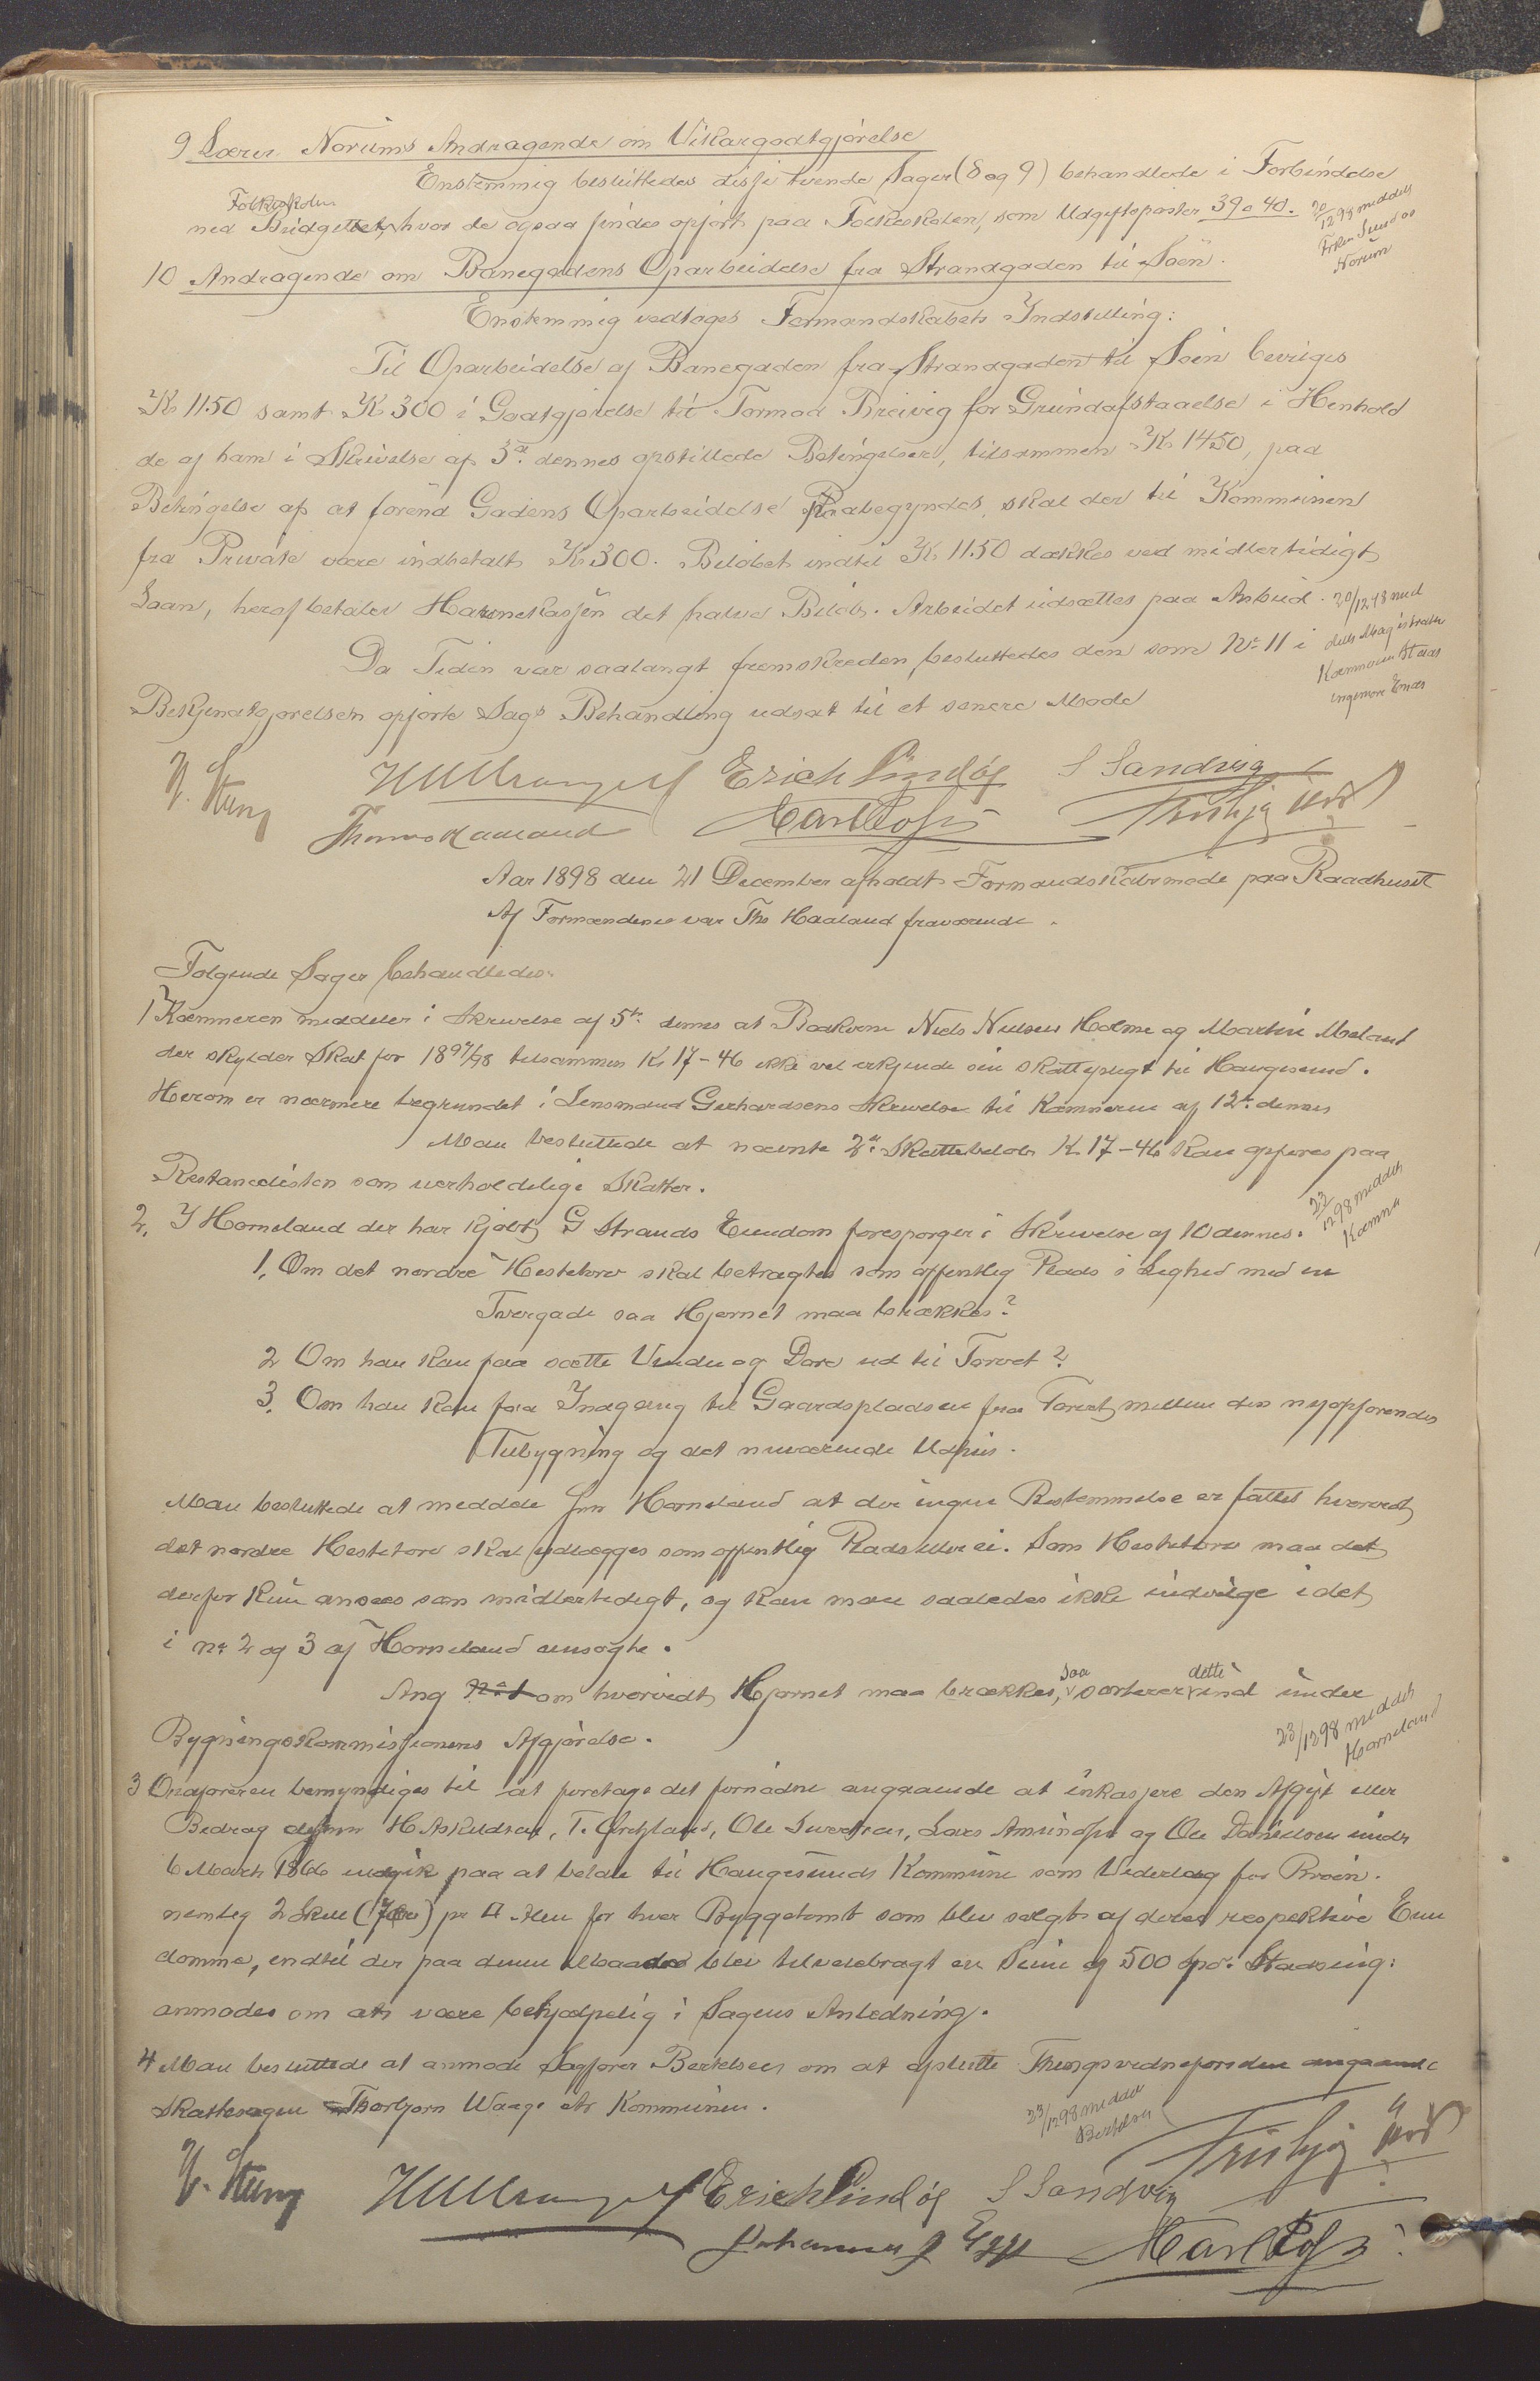 9 Lærer Norums Andragende om Vikargodtgjørelse
Enstemmig besluttedes disse tvende Sager (8 og 9) behandlede i Forbindelse
Folkeskolen
med Budgettet, hvor de ogsaa findes opført paa Folkeskolen, som Udgiftsposter 39 o 40.
20/12 98 meddelt
Frken
Norum
10 Andragende om Banegadens Oparbeidelse fra Strandgaden til Søen.
Enstemmig vedtages Formandskabets Indstilling:
Til Oparbeidelse af Banegaden fra Strandgaden til Søen beviliges
Kr 1150 samt Kr 300 i Godtgjørelse til Tormod Breivig for Grundafstaaelse i Henhold
de af ham i Skrivelse af 3die dennes opstillede Betingelser, tilsammen Kr 1450, paa
Betingelse af at førend Gadens Oparbeidelse paabegyndes, skal der til Kommunen
fra Private være indbetalt Kr 300. Beløbet indtil Kr 1150 dækkes ved midlertidigt
Laan, heraf betaler Havnekassen det halve Beløb. Arbeidet udsættes paa Anbud.
20/12 98 med
delt Magistraten
Kæmneren
Ingeniør
Da Tiden var saalangt fremskreden, besluttedes den som No 11 i
Bekjendtgjørelsen opførte Sags Behandling udsat til et senere Møde
Erich Lindøe S Sandvig
Thomas Haaland
Aar 1898 den 21 December afholdt Formandskabsmøde paa Raadhuset
Af Formændene var Ths Haaland fraværende.
Følgende Sager behandledes
1 Kæmneren meddeler i Skrivelse af 5te dennes at Baakvne Niels Nielsen Holme og Martin Meland
der skylder Skat for 1897/98 tilsammen Kr 17-46 ikke vil erkjende sin Skattepligt til Haugesund.
Herom er nærmere begrundet i Lensmand Gerhardsens Skrivelse til Kæmneren af 12te dennes
Man besluttede at nævnte 2de Skattebeløb Kr 17-46 kan opføres paa
Restancelisten som uerholdelige Skatter.
22/12 98 meddelt
Kæmner
2. I Horneland der har kjøbt G Strands Eiendom forespørger i Skrivelse af 10 dennes.
1. Om det nordre Hestetorv skal betragtes som offentlig Plads i Lighed med en
Tvergade saa Hjørnet maa brækkes?
2 Om han kan faa sætte Vindu og Døre ud til Torvet?
3. Om han kan faa Indgang til Gaardspladsen fra Torvet mellem den nyopførendes
Tilbygning og det nuværende Udhus.
Man besluttede at meddele Hrr Horneland at der ingen Bestemmelse er fattet hvorvidt
det nordre Hestetorv skal udlægges som offentlig Plads eller ei. Som Hestetorv maa det
derfor kun ansees som midlertidigt, og kan man saaledes ikke indvilge i det
i No 2 og 3 af Horneland ansøgte.
Ang No 1 om hvorvidt Hjørnet maa brækkes, saa sorterer dette ind under
Bygningskommissionens Afgjørelse.
23/12 98 meddelt
Horneland
3 Ordføreren bemyndiges til at foretage det fornødne angaaende at inkassere den Afgift eller
Bedrag H Askildsen, T. , Ole Sivertsen, Lars Amundsen og Ole Danielsen under
6 March 1866 indgik paa at betale til Haugesunds Kommune som Vederlag for Broen.
nemlig 2 Skill (7 Øre) pr □ Alen for hver Byggetomt som blev solgt af deres respektive Eien
domme, indtil der paa denne Maade blev tilveiebragt en Sum af 500 Spd. Stadsing:
anmodes om at være behjælpelig i Sagens Anledning.
4 Man besluttede at anmode Sagfører Bertelsen om at afslutte Thingsvidneførselen angaaende
Skattesagen Thorbjørn Waage ctr Kommunen.
23/12 98 meddelt
Bertelsen
Erich Lindøe S Sandvig